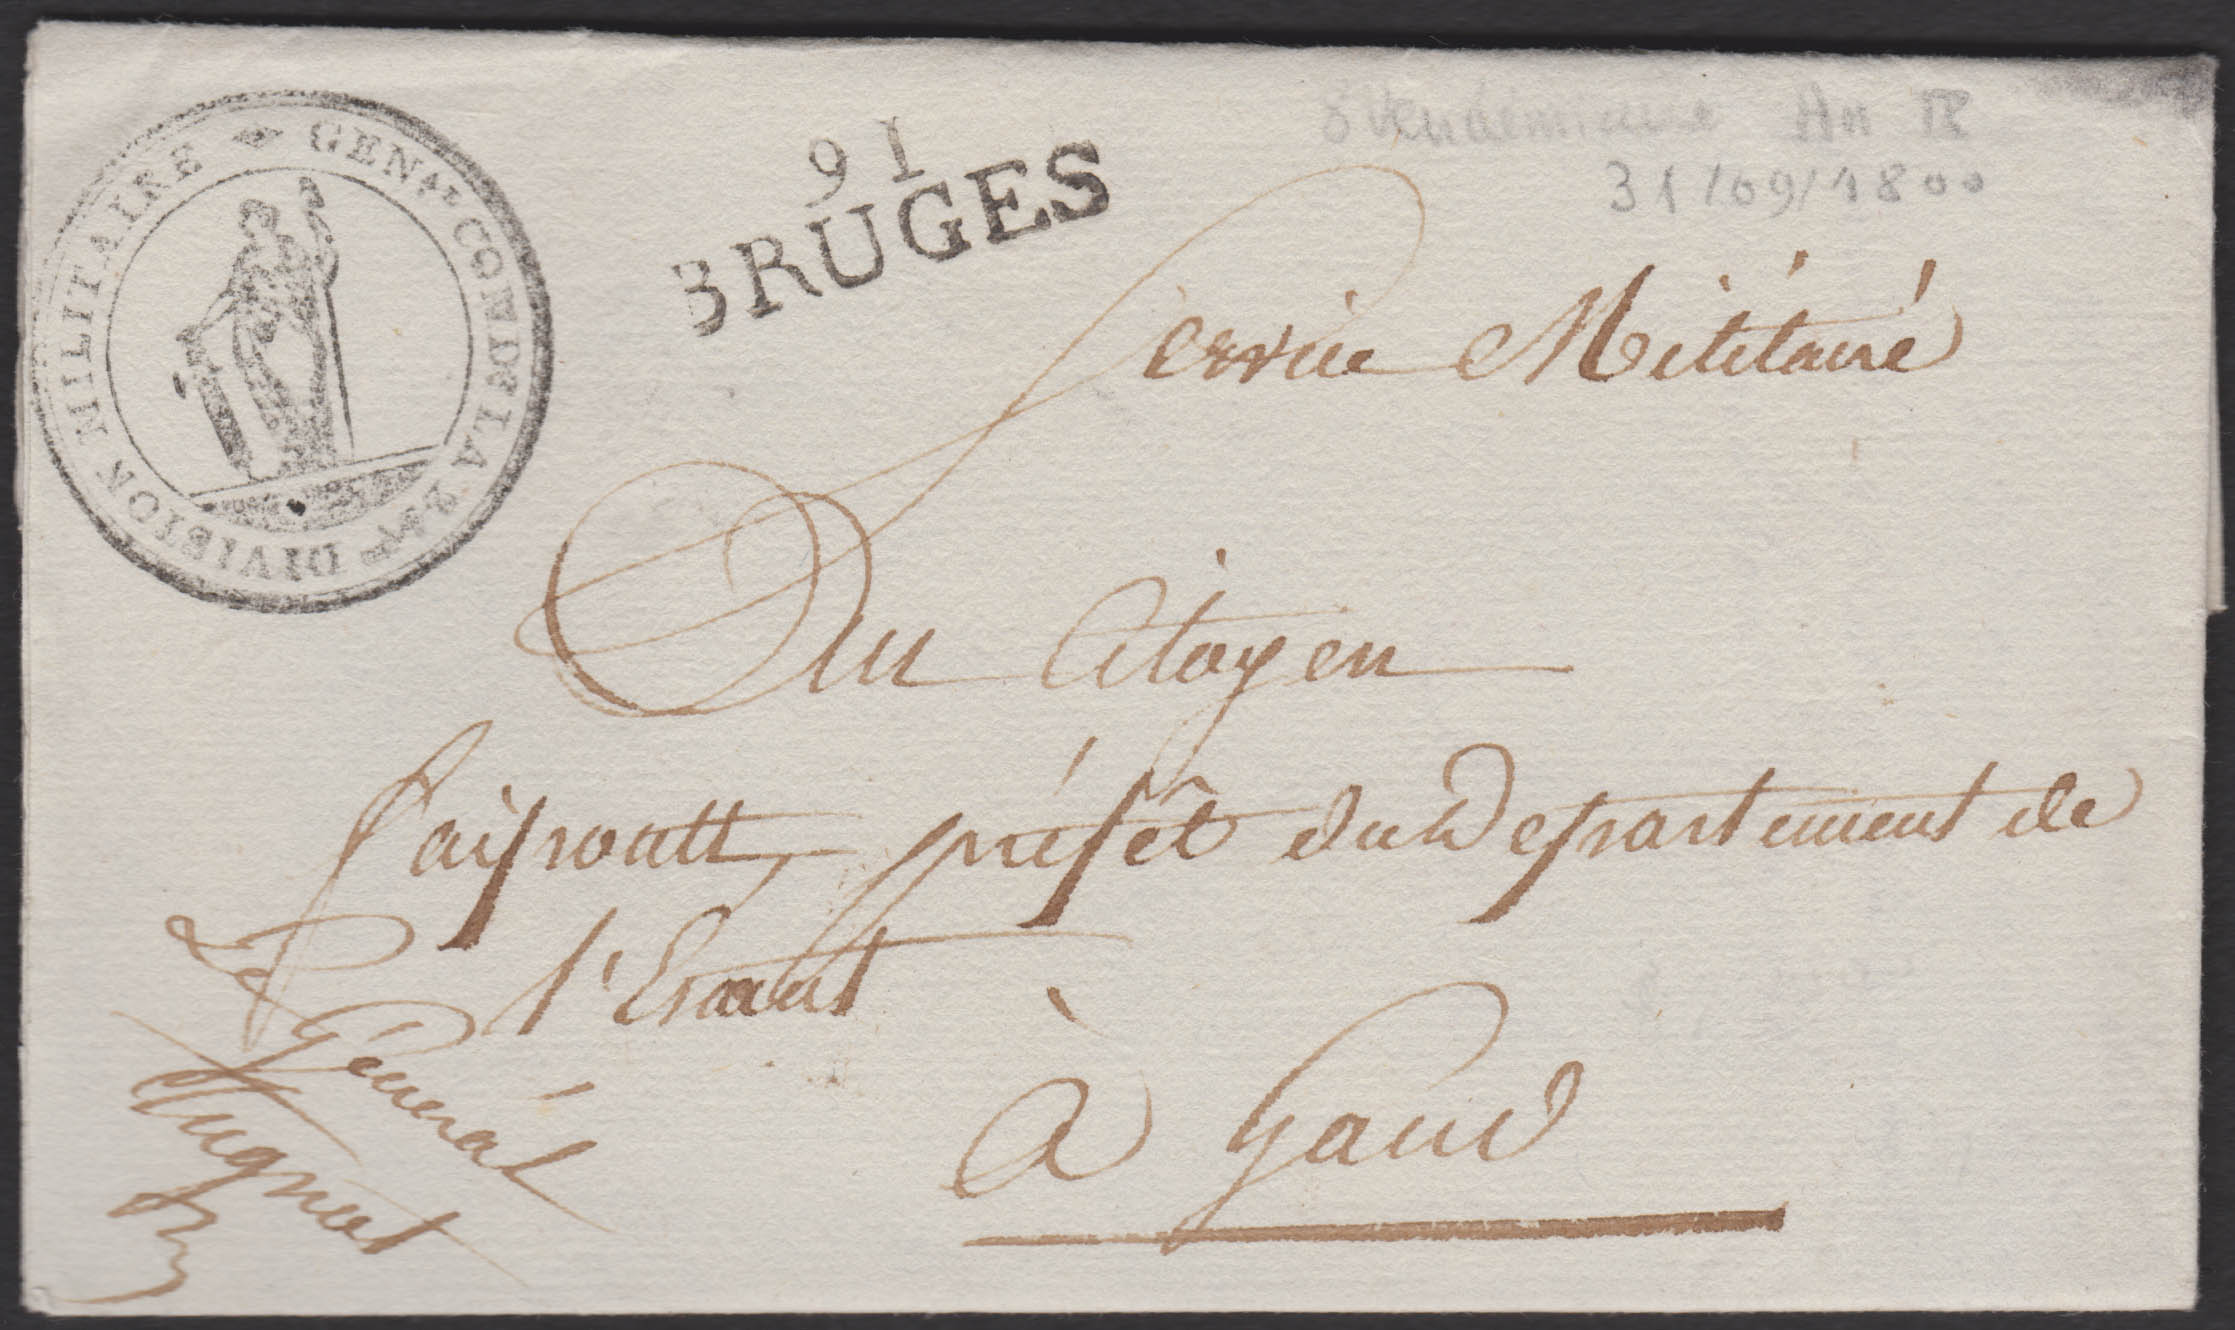 GEN.AL COM. DE LA 24.ME DIVISION MILITAIRE
91
BRUGES
8 Vendémiaire An IX
31/09/1800
Service Militaire
Au Citoyen
faipoult, préfêt du Departement de
l'Escaut
à Gand
Le Général